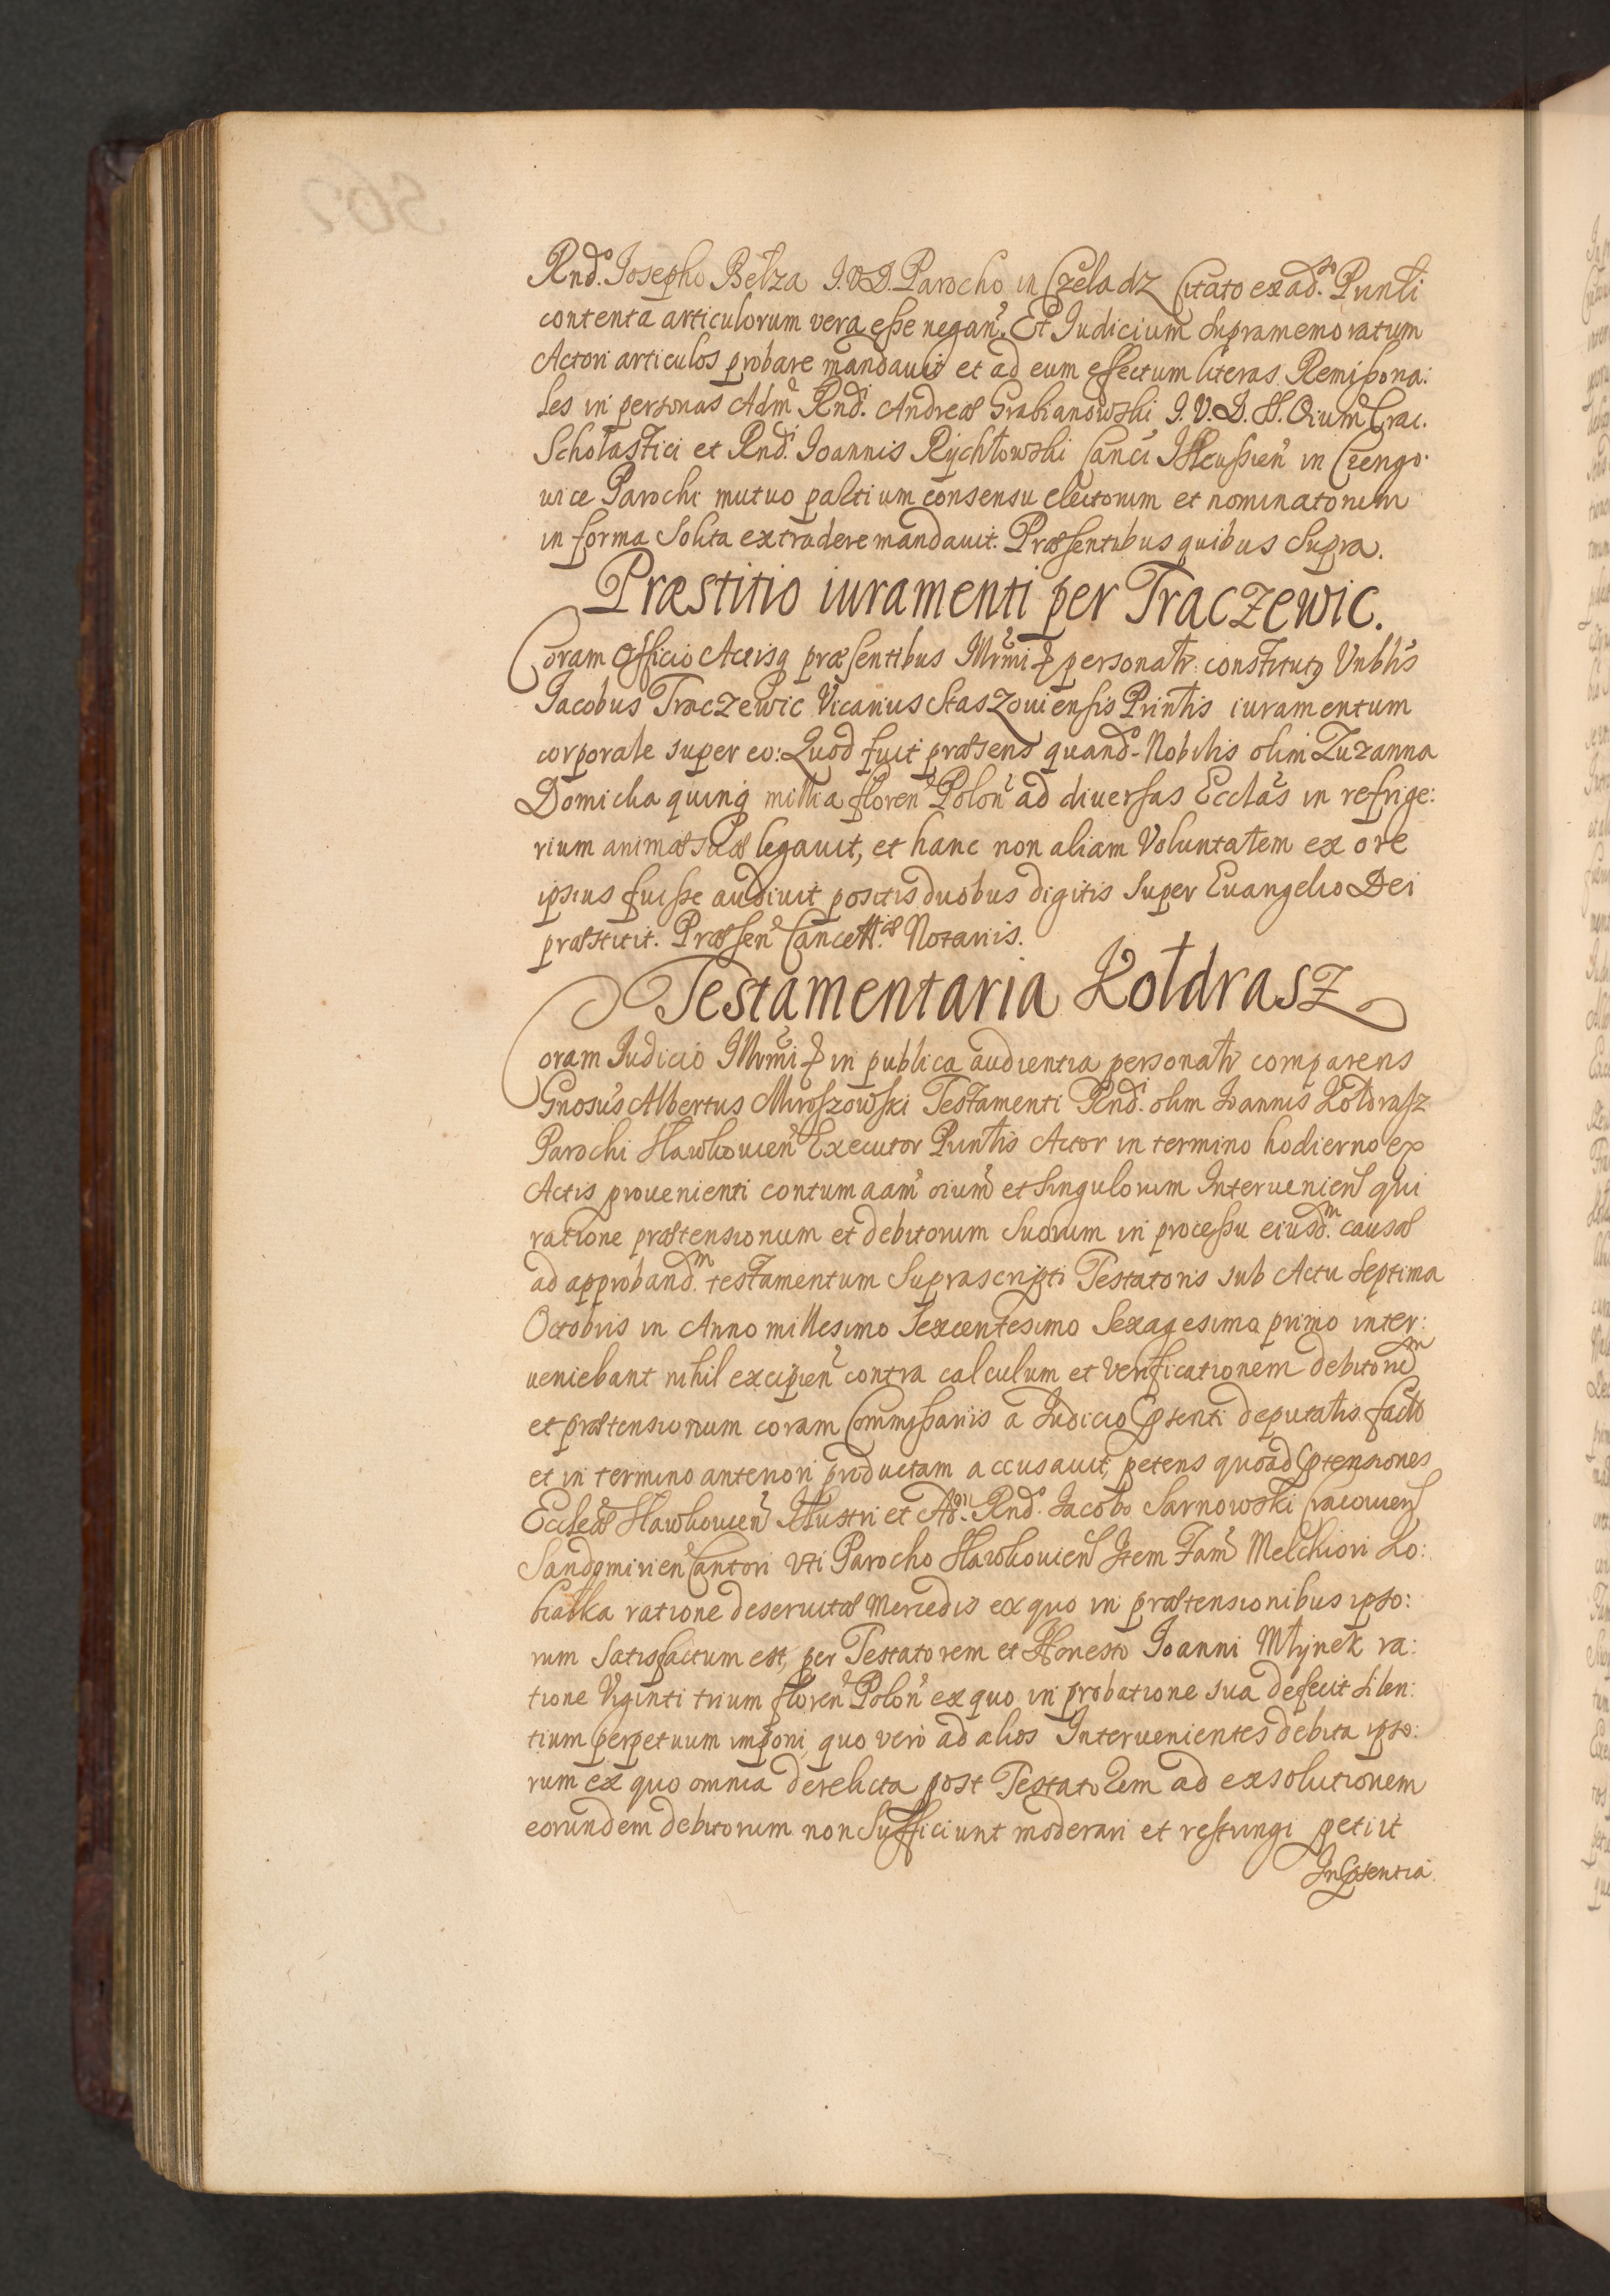 Rndo. Josepho Bełza J.V.D. Parocho in Czeladz Citato ex adm. Pñnti
contenta articulorum vera esse negan̄. Et Judicium Supramemoratum
Actori articulos probare mandavit et ad eum effectum literas Remissona:
les in personas Adm̃ Rndi. Andreæ Grabianowski J.V.D. SS. Oium̄ Crac.
Scholastici et Rndi. Joannis Rychłowski Canci Ilkussien̄ in
uice Parochi mutuo paltium consensu electorum et nominatorum
in forma Solita extradere mandauit. Præsentibus quibus Supra.
Præstitio iuramenti per Traczewic.
Coram Officio Actisq præsentibus Illr̃mi & personalr̃ constitutꝰ Vnblis
Jacobus Traczewic Vicarius Staszouiensis Prin̄tis iuramentum
corporale super eo: Quod fuit præsens quando Nobilis olim Zuzanna
Domicka quinq millia floren̄ Polon̄ ad diuersas Eccłas in refrige:
rium animæ suæ legauit, et hanc non aliam Voluntatem ex ore
ipsius fuisse audiuit positis duobus digitis Super Euangelio Dei
præstitit. Præsen̄ Cancell.æ Notariis.
Testamentaria Kołdrasz
Coram Judicio Illrm̃i & in publica audientia personalr̃ comparens
Gnosus Albertus Miroszowski Testamenti Rndi. olim Joannis Kołdrasz
Parochi Sławkouien̄ Executor Pñntis Actor in termino hodierno ex
Actis prouenienti contumaam̃ oium̄ et singulorum Interuenien̄ qui
ratione prætensionum et debitorum Suorum in processu eiusdm. causæ
ad approbandm. testamentum Suprascripti Testatoris sub Actu Septima
Octobris in Anno millesimo Sexcentesimo Sexagesimo primo inter:
ueniebant nihil excipien̄ contra calculum et verificationem debitorum
et prætensionum coram Commissariis a Judicio pſenti deputatis facto
et in termino anteriori productam accusauit, petens quoad ptensiones
Eccleæ Sławkouien̄ Illustri et Adm. Rndo. Jacobo Sarnowski Cracouien̄
Sandomirien̄ Cantori uti Parocho Sławkouien̄ Item Fam̃ Melchiori Ło:
białka ratione deseruitæ Mercedis ex quo in prætensionibus ipso:
rum Satisfactum est, per Testatorem et Honesto Joanni Młynek ra:
tione Viginti trium floren̄ Polon̄ ex quo in probatione sua defecit silen:
tium perpetuum imponi, quo vero ad alios Interuenientes debita ipso:
rum ex quo omnia derelicta post Testatorem ad exsolutionem
eorundem debitorum non Sufficiunt moderari et restringi petiit
In pſentia